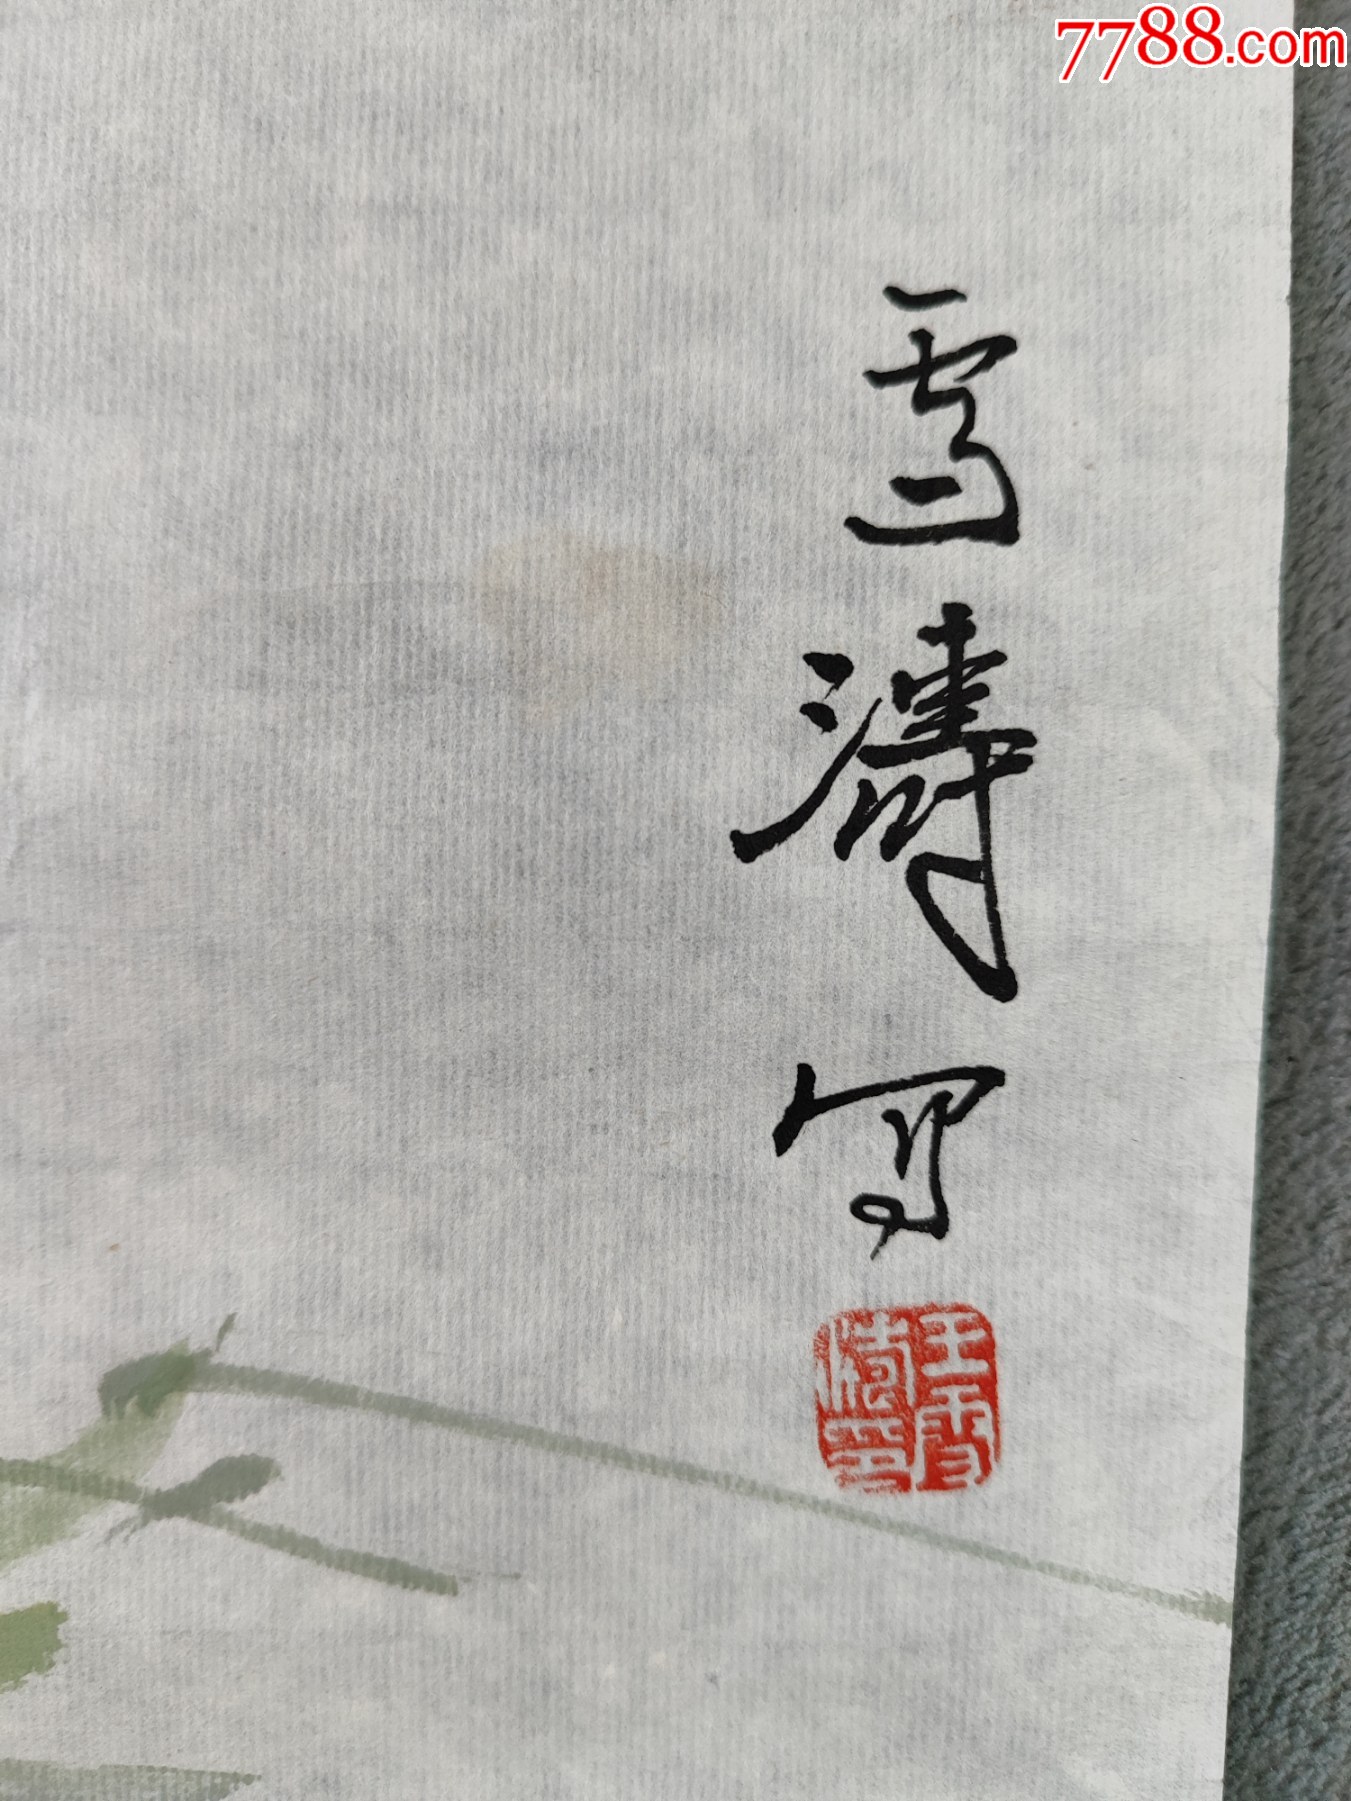 7788.com
雪濤寫
王雪濤印